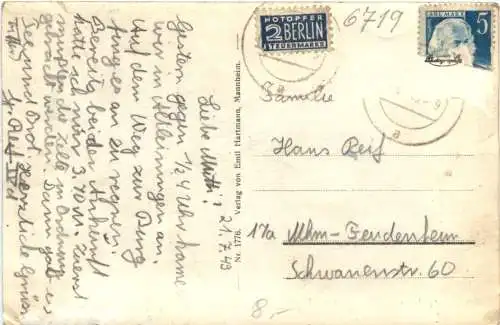 Liebe Mutti! 21.7.49
Gestern gegen ½4 Uhr kamen
wir in Alleiningen an.
Auf dem Weg zur Burg
fing es an zu regnen.
Bereits beider Ankunft
hatte ich nur 3,70 M. Zuerst
mußten die Zelte in Ordnung
gebracht werden. Dann gab es
Tee und Brot. Herzliche Grüsse
Nr. 1776. Verlag von Emil Hartmann, Mannheim.
NOTOPFER
2 BERLIN
STEUERMARKE
6719
KARL MARX
5
a
a
Familie
Hans Reif
17a Mhm-Feudenheim
Schwanenstr. 60
8,-